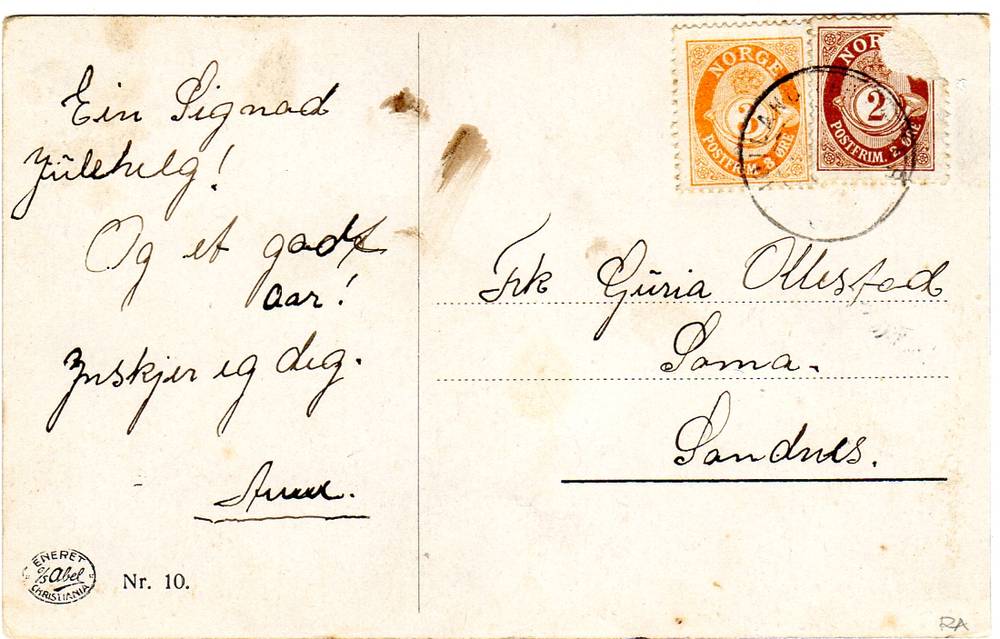 Ein Signad
Julehelg!
Og et godt
aar!
Ynskjer eg deg.
NORGE
3
POSTFRIM. 3 ØRE
NOR
2
POSTFRIM. 2 ØRE
Frk Guria Ollestad
Soma.
Sandnes.
ENERET
o/s Abel
CHRISTIANIA
Nr. 10.
RA